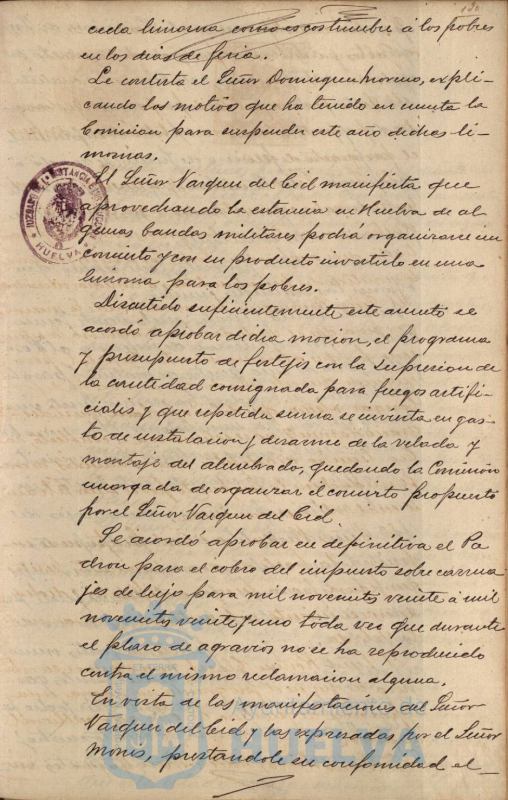 ceda limosna como es costumbre á los pobres
en los dias de feria.
Le contesta el Señor Dominguez Moreno, expli-
cando los motivos que ha tenido en cuenta la
Comision para suspender este año dichas li-
mosnas.
El Señor Vazquez del Cid manifiesta que
aprovechando la estancia en Huelva de al-
gunas bandas militares podrá organizarse un
concierto y con su producto invertirlo en una
limosna para los pobres.
Discutido suficientemente este asunto se
acordó aprobar dicha mocion, el programa
y presupuesto de festejos con la supresion de
la cantidad consignada para fuegos artifi-
ciales y que repetida suma se invierta en gas-
to de instalacion y desarme de la velada y
montaje del alumbrado, quedando la Comision
encargada de organizar el concierto propuesto
por el Señor Vazquez del Cid.
Se acordó aprobar en definitiva el Pa
dron para el cobro del impuesto sobre carrua
jes de lujo para mil novecientos veinte á mil
novecientos veinte y uno toda vez que durante
el plazo de agravios no se ha reproducido
contra el mismo reclamacion alguna.
En vista de las manifestaciones del Señor
Vazquez del Cid, y las expresadas por el Señor
Monis, prestandole su conformidad el
HUELVA
HUELVA